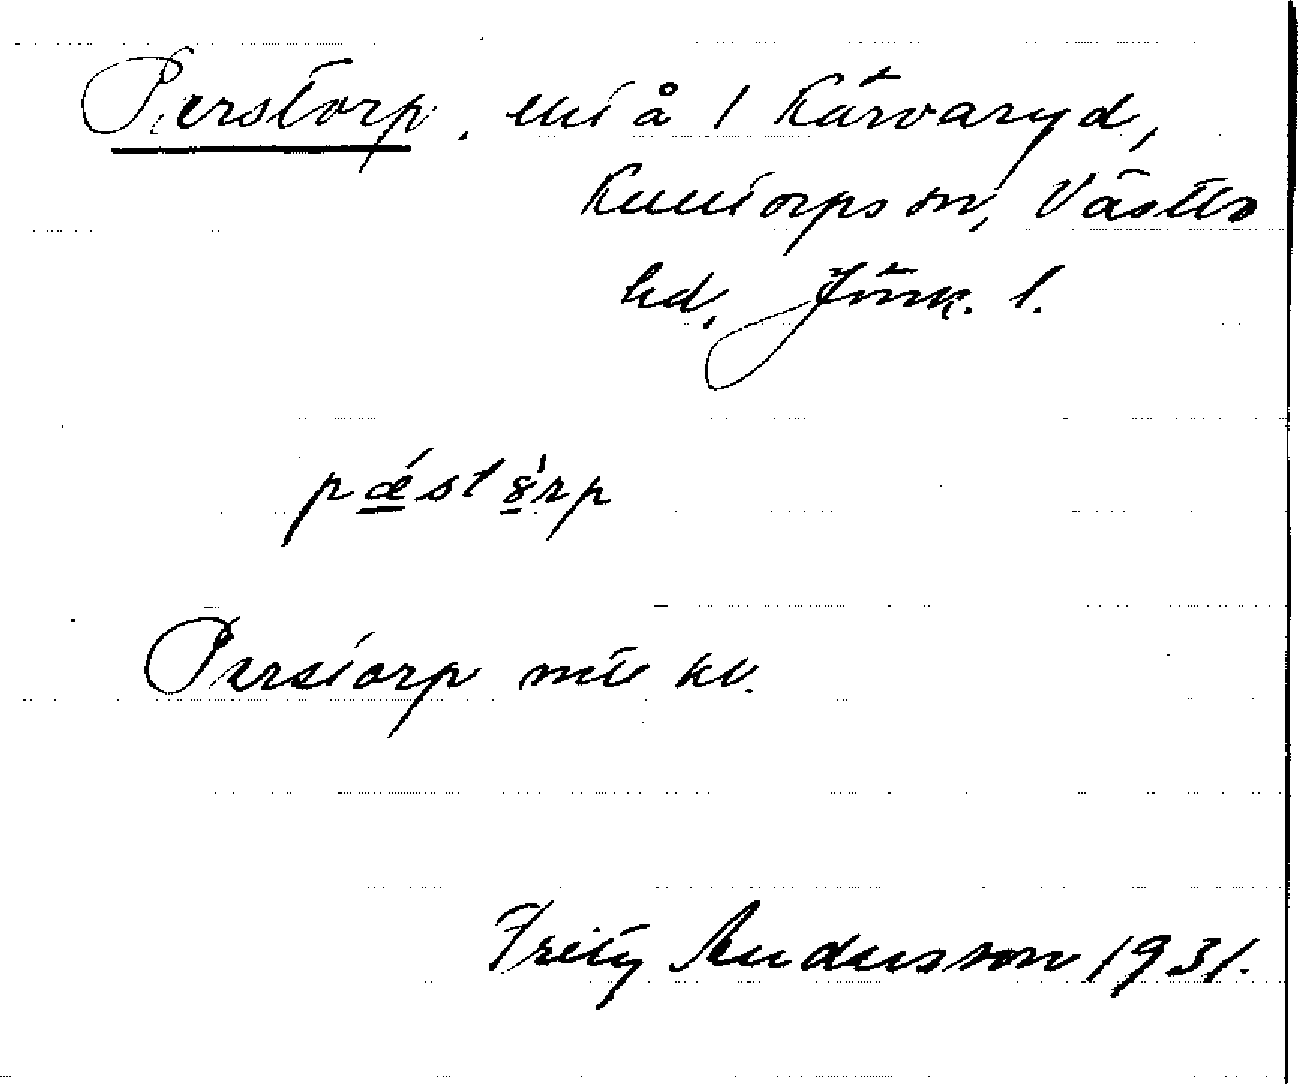 Perstorp, utj å 1 Kärvaryd,
Kulltorps sn, Västbo
hd, Jönk. l.
pǽstȣ̀rp
Perstorp
Fritz Andersson 1931.